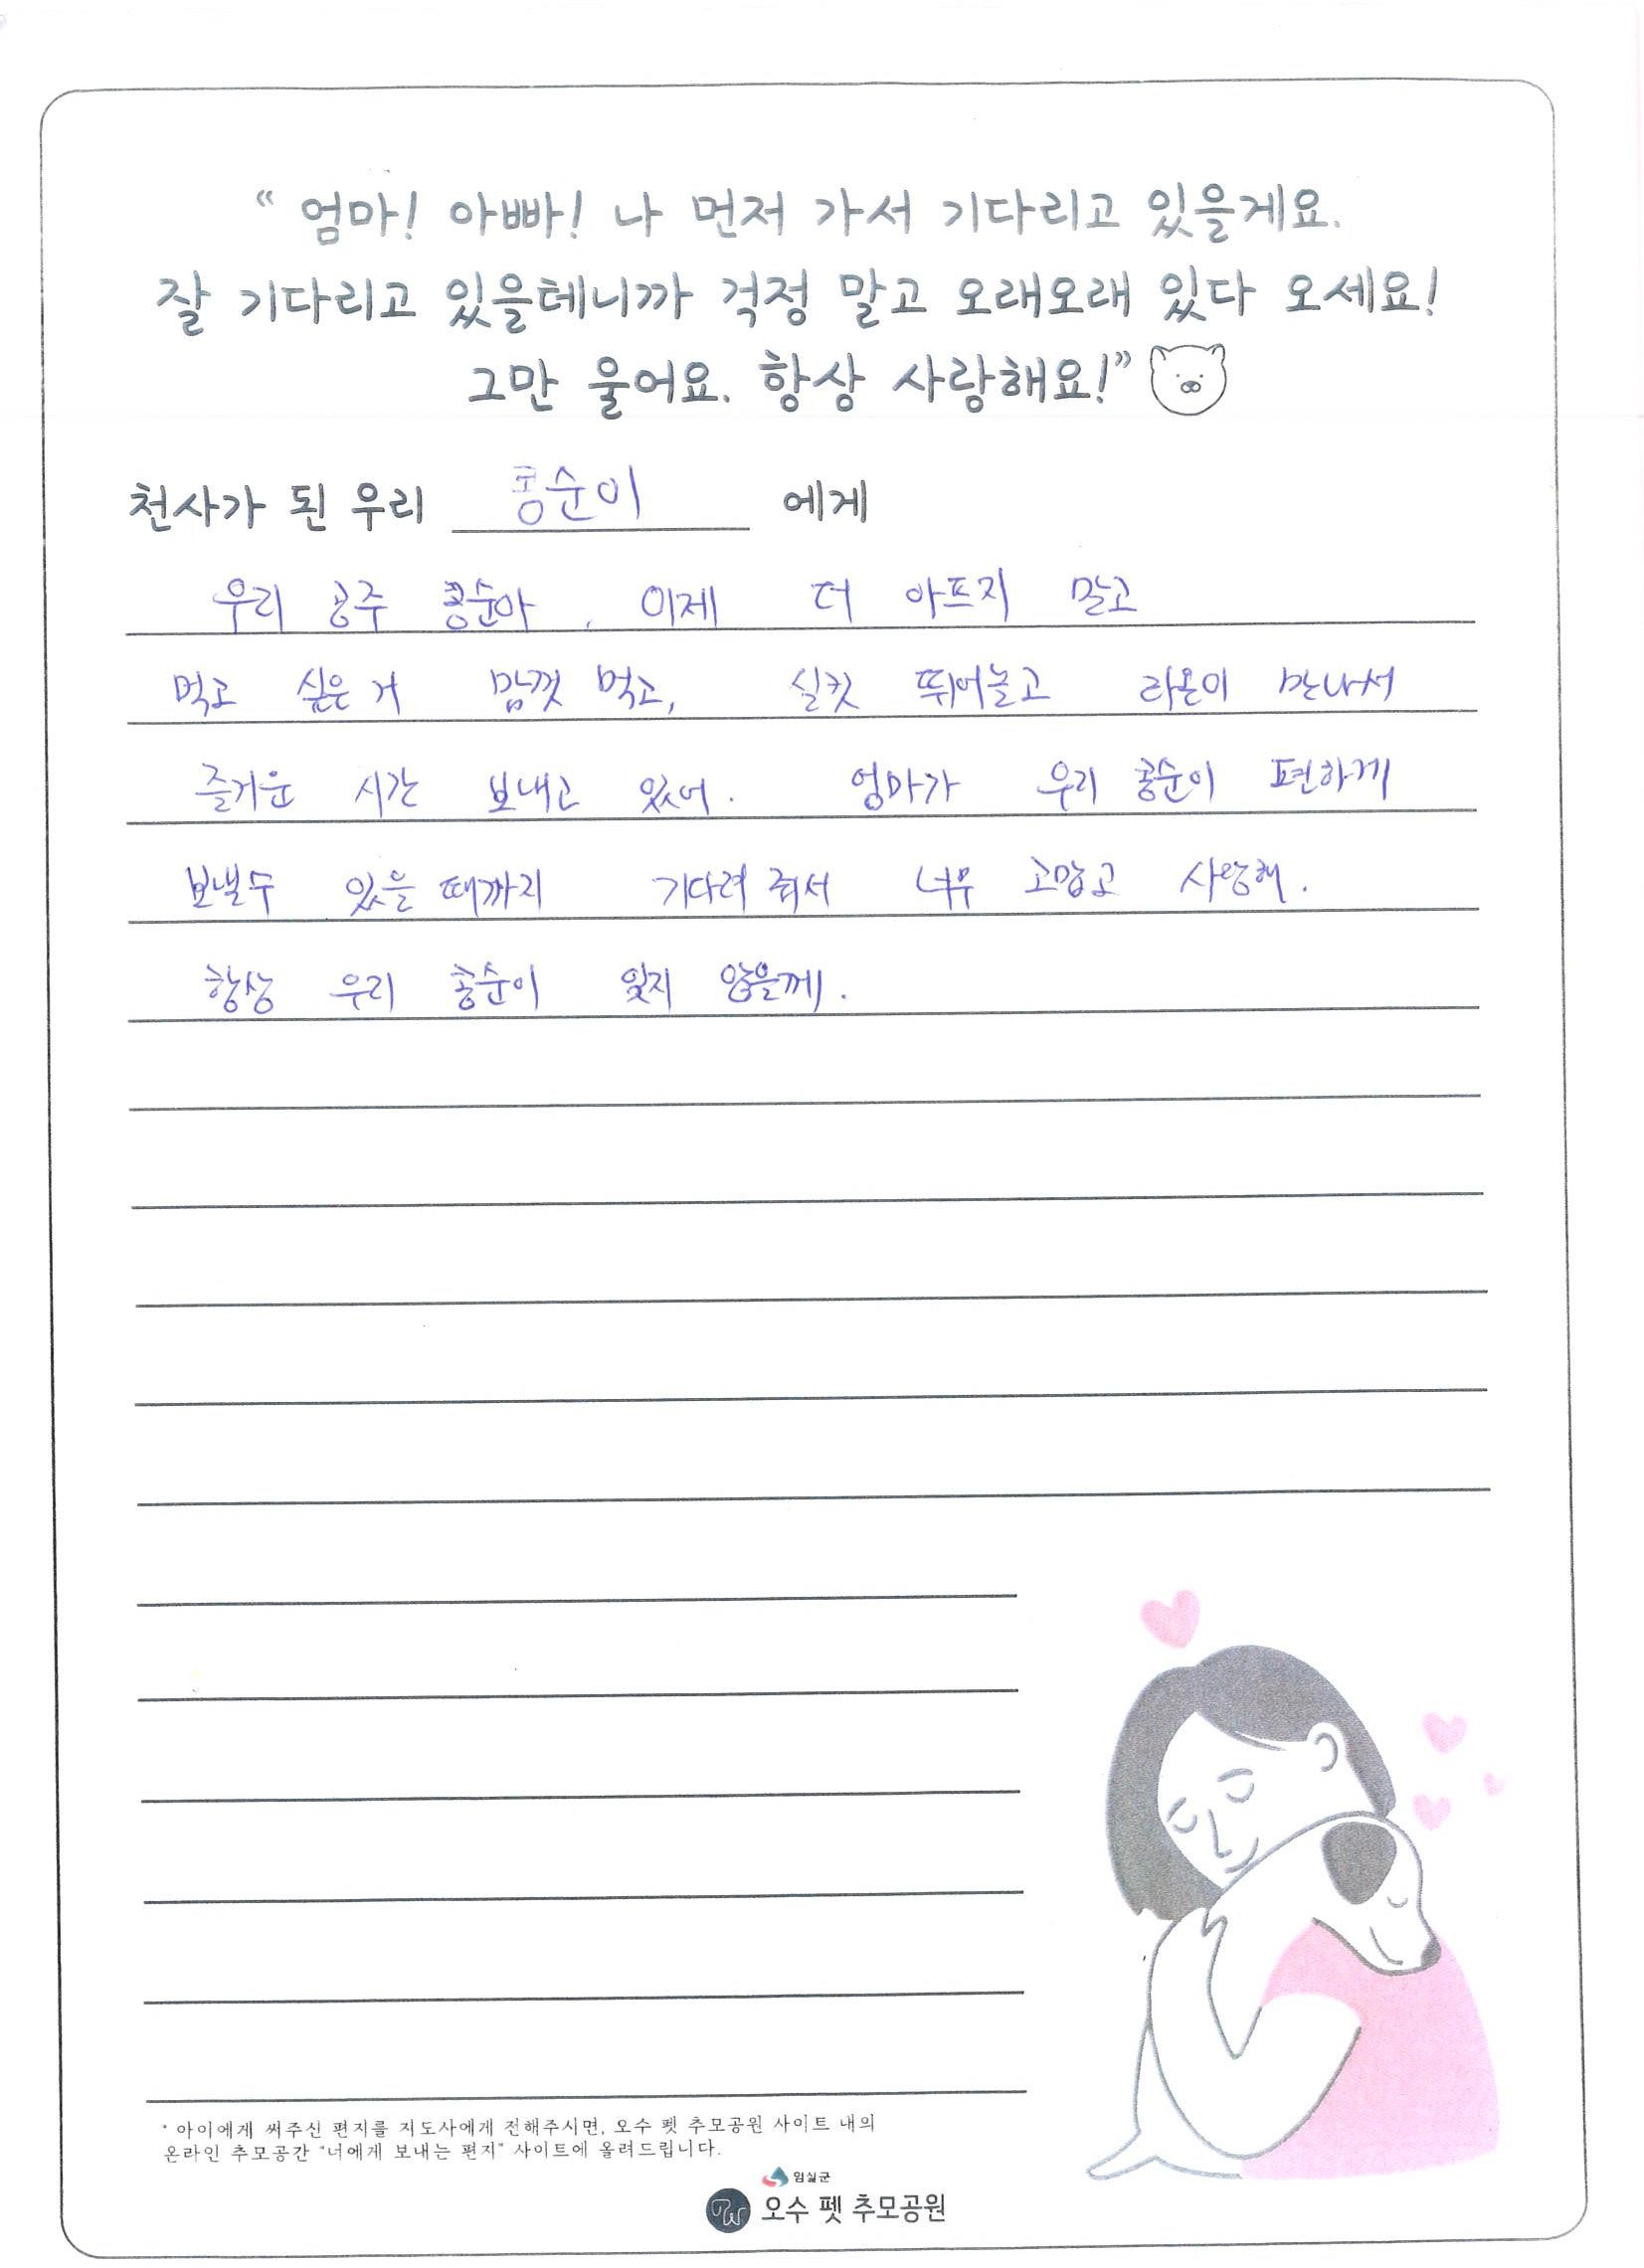 “ 엄마! 아빠! 나 먼저 가서 기다리고 있을게요.
잘 기다리고 있을테니까 걱정 말고 오래오래 있다 오세요!
그만 울어요. 항상 사랑해요!”
천사가 된 우리 콩순이 에게
우리 공주 콩순아, 이제 더 아프지 말고
먹고 싶은 거 맘껏 먹고, 실컷 뛰어놀고 라온이 만나서
즐거운 시간 보내고 있어. 엄마가 우리 콩순이 편하게
보낼수 있을 때까지 기다려 줘서 너무 고맙고 사랑해.
항상 우리 콩순이 잊지 않을께.
* 아이에게 써주신 편지를 지도사에게 전해주시면, 오수 펫 추모공원 사이트 내의
온라인 추모공간 "너에게 보내는 편지" 사이트에 올려드립니다.
임실군
오수 펫 추모공원